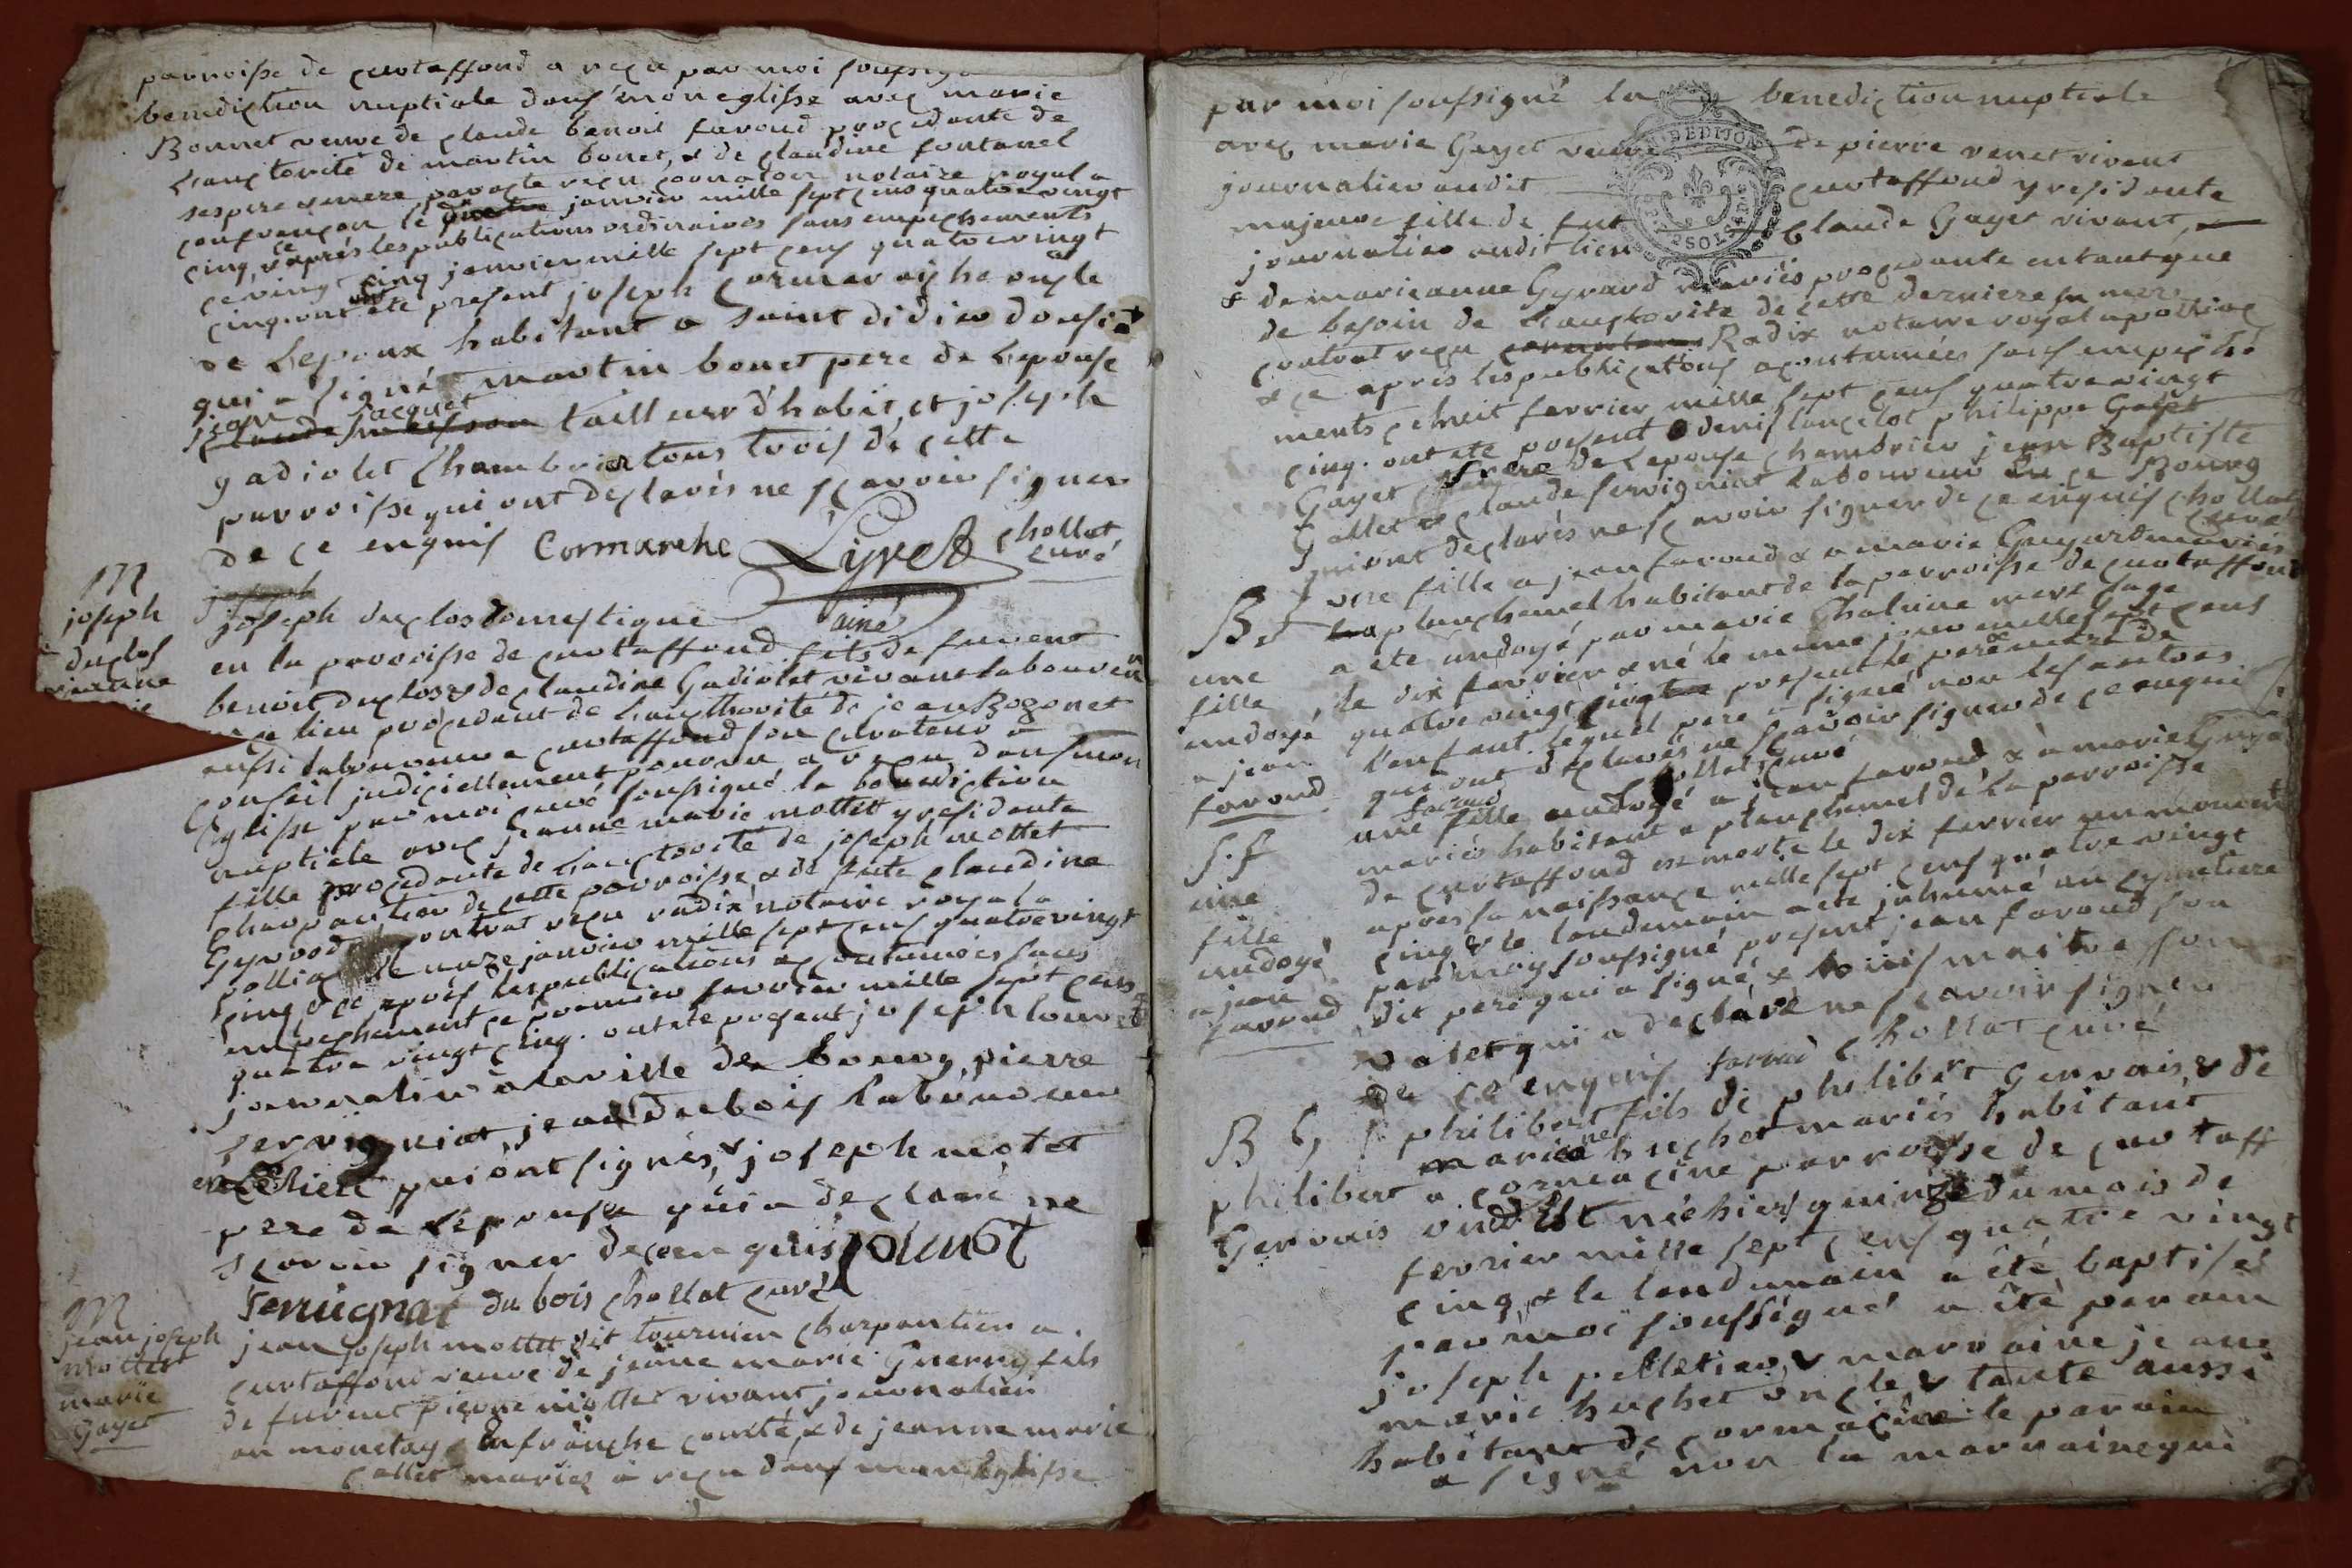 parroisse de curtaffond a reçu par moi soussigné
benediction nuptiale dans mon eglisse avec marie
Bonnet veuve de claude benoit favoud procedante de
l'auctorité de martin bonet, & de claudine fontanel
ses pere & mere par acte reçu notaire royal a
confrançon le janvier mille sept cens quatre vingt
cinq, & ce après les publications ordinaires sans empechements
ce vingt cinq janvier mille sept cens quatre vingt
cinq. ont été present joseph cormarayche oncle
de Lepoux habitant a saint didier
qui a signé martin bonet pere de Lepouse
jean jacquet tailleur d'habit, et joseph
gadiolet chambrier tous trois de cette
parroisse qui ont declarés ne scavoir signer
de ce enquis Cormarehe Lyvet chollat
curé
ainé
M
joseph
duclos
joseph duclos domestique
en la parroisse de curtaffond fils de furent
benoit duclos & de claudine Gadiolet vivant laboureur
lieu procedant de l'aucthorité de jean Bozonet
aussi laboureur a curtaffond son curateur a
conseil judiciellement pourvu a reçu dans mon
Eglisse par moi curé soussigné la benediction
nuptiale avec jeanne marie mottet y residente
fille procedante de l'auctorité de joseph mottet
charpantier de cette parroisse & de fute claudine
contrat reçu radix notaire royal a
polliat le unze janvier mille sept cens quatre vingt
cinq & ce après les publications accoutumées sans
empechement ce premier favrier mille sept cens
quatre vingt cinq. ont été present joseph
journalier a la ville de bourg, pierre
servigniat, jean dubois laboureur
qui ont signés, & joseph motet
pere de l'epouse qui a declaré ne
scavoir signer de ce enquis
servignat du bois chollat curé
M
jean joseph
mottet
marie
Gayet
jean joseph mottet dit tournier charpantier a
curtaffond veuve de jeanne marie Guerry fils
de furent pierre mottet vivant journalier
au monetay en franche comté, & de jeanne marie
collet mariés a reçu dans mon Eglisse
par moi soussigné la benediction nuptiale
avec marie Gayet veuve de pierre venet vivant
journalier audit curtaffond y residente
majeure fille de fut claude Gayet vivant
journalier audit lieu
& de marieanne Gyrard mariés procedante entant que
de besoin de l'auctorité de cette derniere sa mere
contrat reçu Radix notaire royal a polliat
& ce après les publications acoutumées sans empeche
ments ce huit fevrier mille sept cens quatre vingt
cinq. ont été present denis lancelot philippe Gayet
Gayet frere de Lepouse chambrier jean Baptiste
Gallet & claude servigniat laboureur en ce Bourg
qui ont declarés ne scavoir signer de ce enquis chollat
curé
B.f
une
fille
undoyé
a jean
favoud
une fille a jean favoud & a marie Guyardmariés
a planchamel habitant de la parroisse de curtaffond
a été undoyé par marie Chaluine mere sage
le dix favrier & né le meme jour mille sept cens
quatre vingt cinq present le pere & mere de
l'enfant. lequel pere a signé non les autres
qui ont declarés ne scavoir signer de ce enquis
favoud chollat curé
S.f
une
fille
undoyé
a jean
favoud
une fille undoyé a jean favoud & a marie Guya
mariés habitant a planchamel de la parroisse
de curtaffond est morte le dix favrier un moment
après sa naissance mille sept cens quatre vingt
cinq & le landemain a été inhumé au cymetiere
par moy soussigné, present jean favoud son
dit pere qui a signé, & louis maitre son
valet qui a declaré ne scavoir signer
de ce enquis favoud chollat curé
B G
philibert
Gervais
philibert fils de philibert Gervais & de
marie huchet mariés habitant
a cormacine parroisse de curtaff
ond est né hier quinze du mois de
fevrier mille sept cens quatre vingt
cinq, & le landemain a été baptisé
par moi soussigné a été parain
joseph pelletier & marraine jeane
marie huchet oncle & tante aussi
habitant de cormacine le parain
a signé non la marraine qui